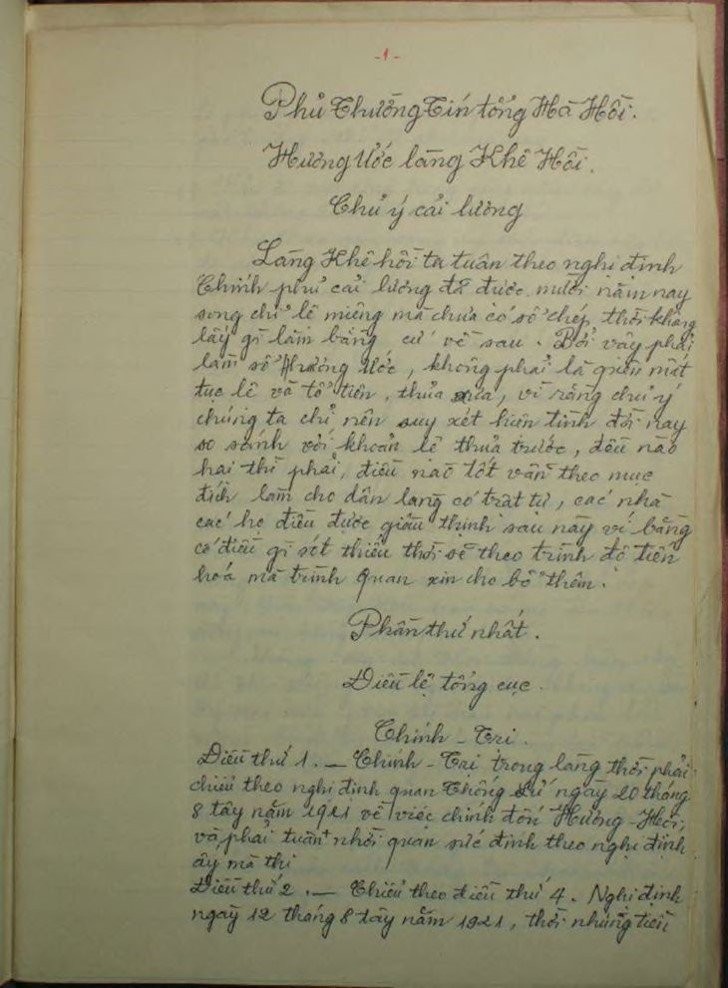 -1-
Phủ Thường Tín tổng Hà Hồi.
Hương Ước làng Khê Hồi.
Chủ ý cải lương
Làng Khê hồi ta tuân theo nghị định
Chính phủ cải lương đã được mười năm nay
song chỉ lê miệng mà chưa có sổ chép, thời không
lấy gì làm bằng cứ về sau. Bởi vậy phải
làm sổ Hương Ước, không phải là quên mất
tục lệ về tổ tiên, thủa xưa, vì rằng chủ ý
chúng ta chỉ nên suy xét hiện tình đời nay
so sánh với khoản lệ thủa trước, điều nào
hai thì phải, điều nào tốt vẫn theo mục
đích làm cho dân làng có trật tự, các nhà
các họ điều được giầu thịnh sau này ví bằng
có điều gì sót thiếu thời sẽ theo trình độ tiến
hoá mà trình quan xin cho bổ thêm.
Phần thứ nhất.
Điều lệ tổng cục.
Chính - Trị.
Điều thứ 1. — Chính - Trị trong làng thời phải
chiểu theo nghị định quan Thống sứ ngày 20 tháng
8 tây năm 1921 về việc chỉnh đốn Hương - Hội,
và phải tuân nhời quan sức định theo nghị định
ấy mà thi
Điều thứ 2. — Chiểu theo điều thứ 4. Nghị định
ngày 12 tháng 8 tây năm 1921, thời những tiền